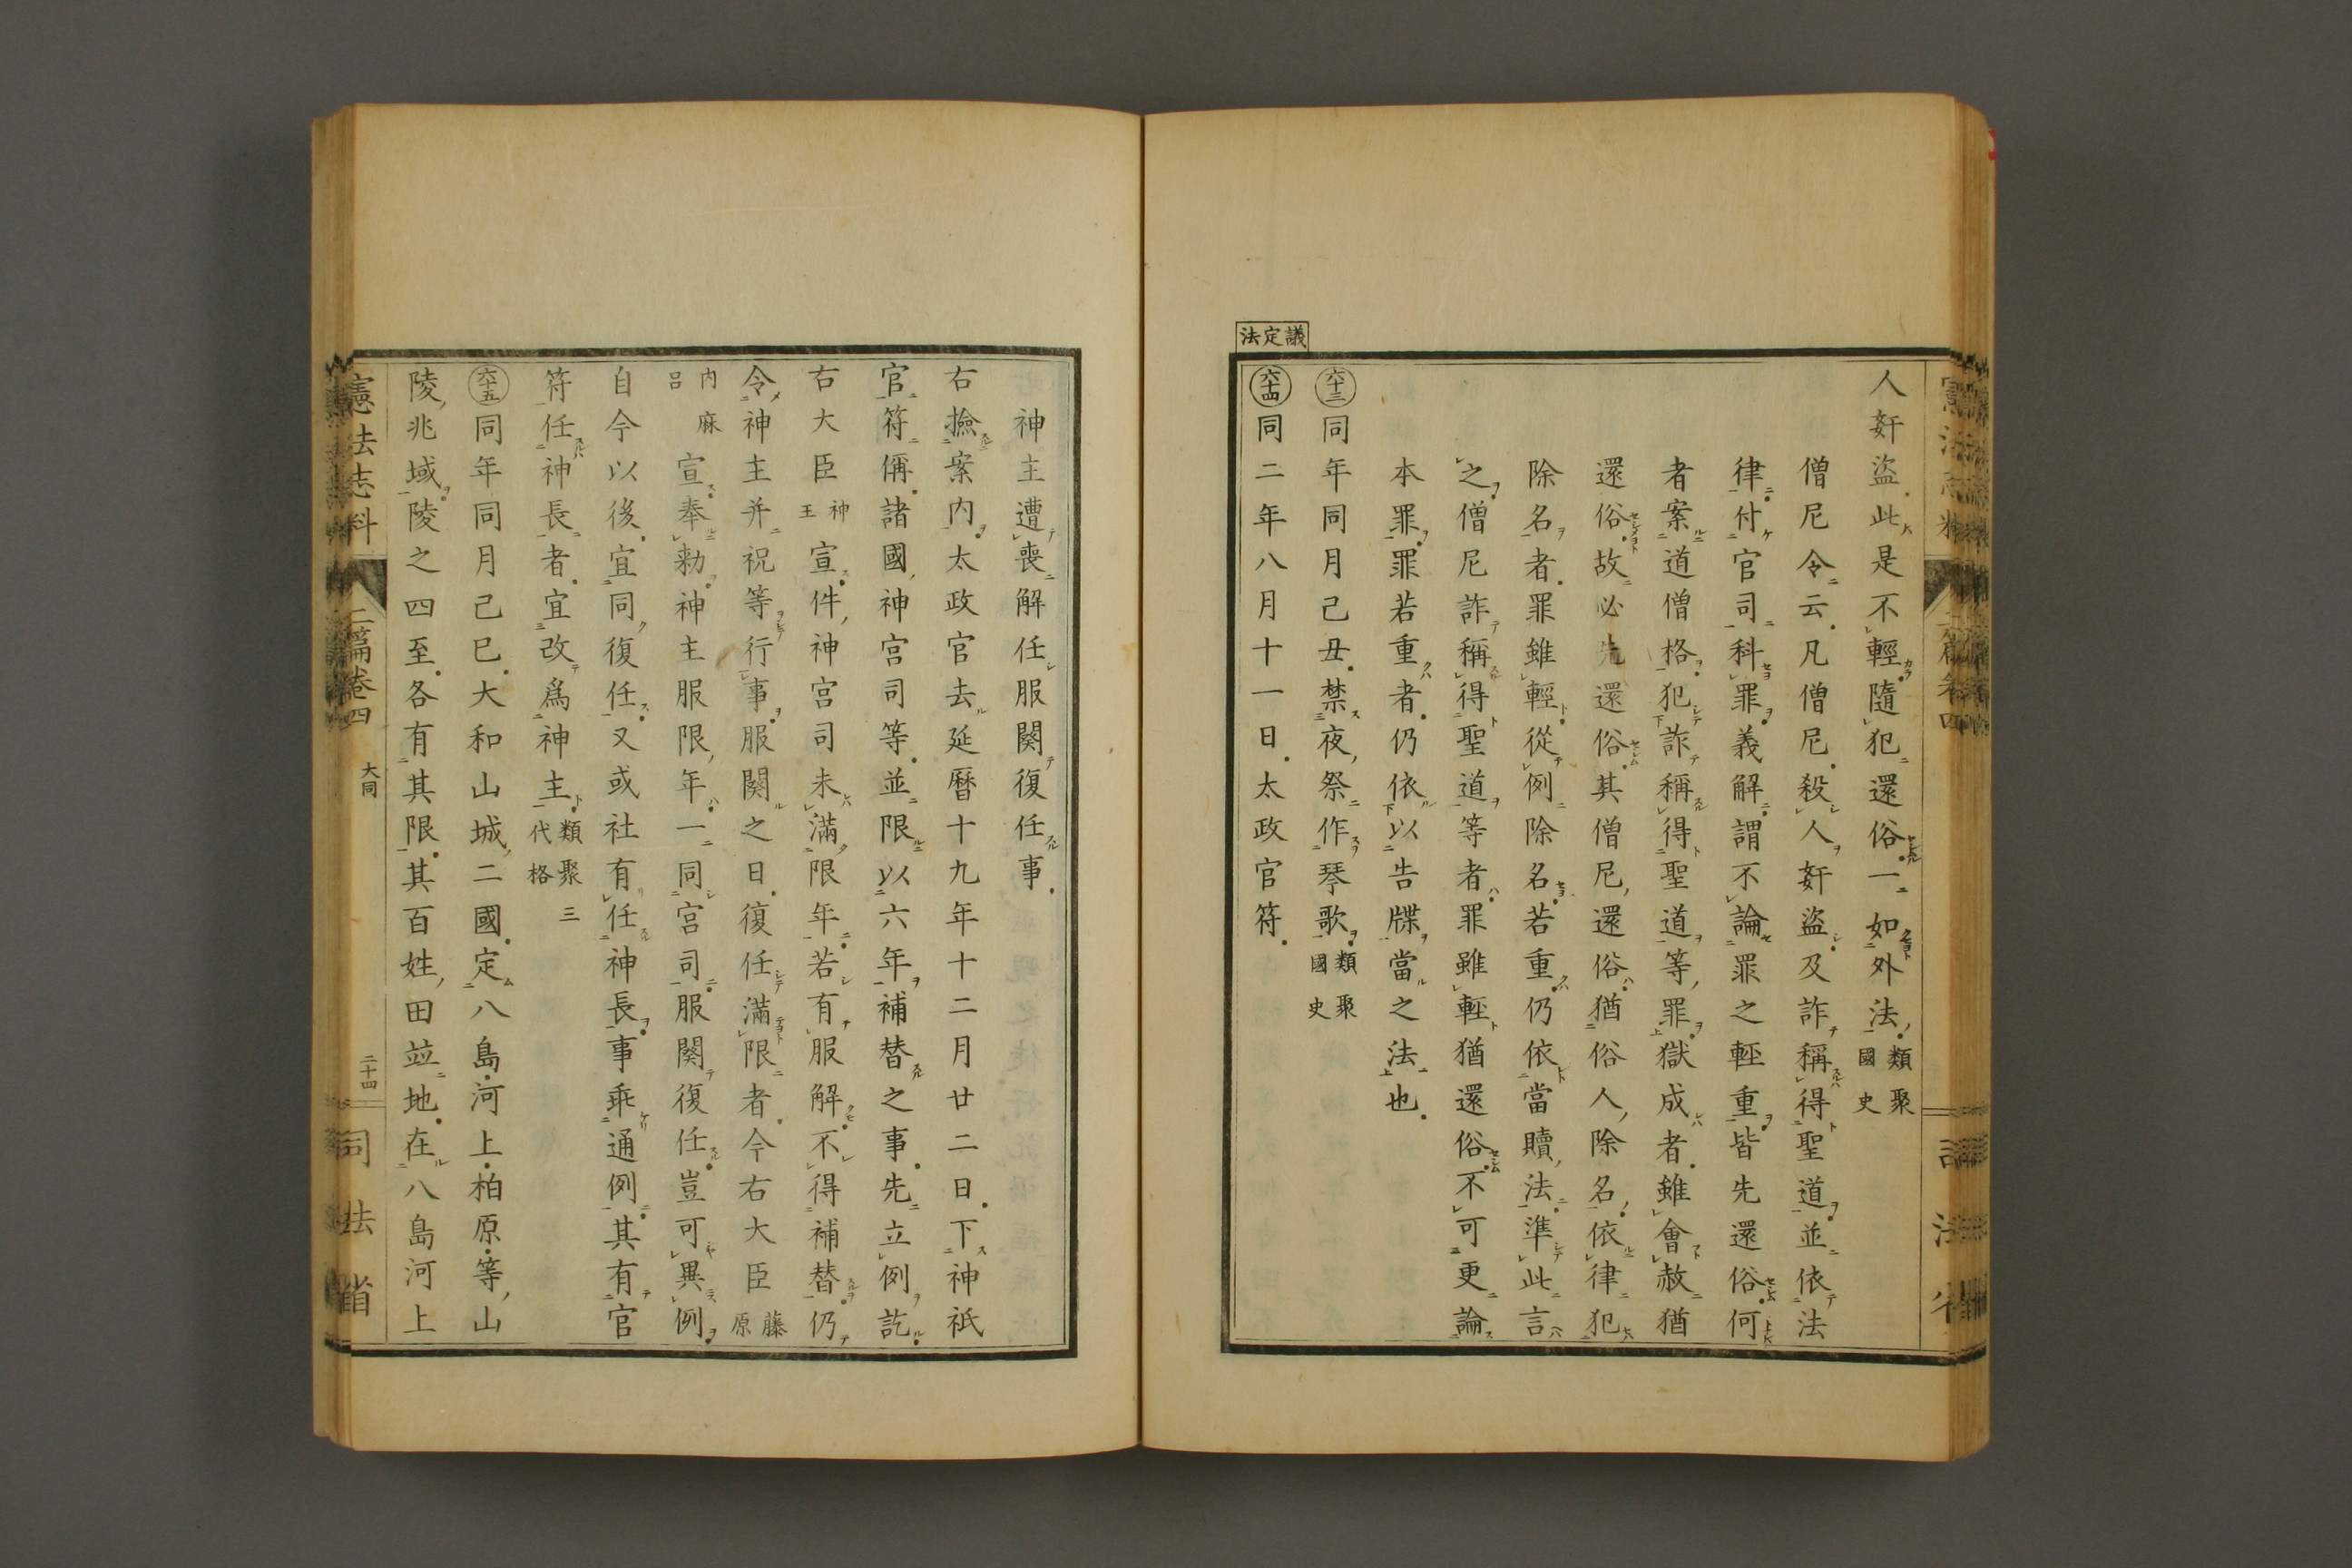 人奸盜此是不輕隨犯還俗一如外法類聚國史
僧尼令云凡僧尼殺人奸盜及詐稱得聖道並依法
律付官司科罪義解謂不論罪之輕重皆先還俗何
者案道僧格犯詐稱得聖道等罪獄成者雖會赦猶
還俗故必先還俗其僧尼還俗猶俗人除名依律犯
除名者罪雖輕從例除名若重仍依當贖法準此言
之僧尼詐稱得聖道等者罪雖輕猶還俗不可更論
本罪罪若重者仍依以告牒當之法也
六十三同年同月己丑禁夜祭作琴歌類聚國史
議定法
六十四同二年八月十一日太政官符
神主遭喪解任服闋復任事
右撿案内太政官去延曆十九年十二月廿二日下神祇
官符偁諸國神宮司等並限以六年補替之事先立例訖
右大臣神王宣件神宮司未滿限年若有服解不得補替仍
令神主并祝等行事服闋之日復任滿限者今右大臣藤原
内麻呂宣奉勅神主服限年一同宮司服闋復任豈可異例
自今以後宜同復任又或社有任神長事乖通例其有官
符任神長者宜改爲神主類聚三代格
六十五同年同月己巳大和山城二國定八島河上柏原等山
陵兆域陵之四至各有其限其百姓田竝地在八島河上
憲法志料
二篇卷四
大同
二十四
司法省